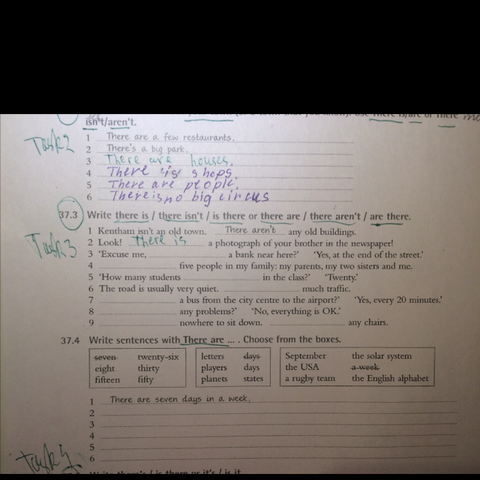 isn't/aren't.
Task 2
1 There are a few restaurants.
2 There's a big park.
3 There are houses.
4 There shops.
5 There are people.
6 There is no big circus
37.3 Write there is / there isn't / is there or there are / there aren't / are there.
Task 3
1 Kentham isn't an old town. There aren't any old buildings.
2 Look! There is a photograph of your brother in the newspaper!
3 'Excuse me, a bank near here?' 'Yes, at the end of the street.'
4 five people in my family: my parents, my two sisters and me.
5 'How many students in the class?' 'Twenty.'
6 The road is usually very quiet. much traffic.
7 a bus from the city centre to the airport?' 'Yes, every 20 minutes.'
8 any problems?' 'No, everything is OK.'
9 nowhere to sit down. any chairs.
37.4 Write sentences with There are ... . Choose from the boxes.
seven twenty-six letters days September the solar system
eight thirty players days the USA a week
fifteen fifty planets states a rugby team the English alphabet
1 There are seven days in a week.
2
3
4
5
6